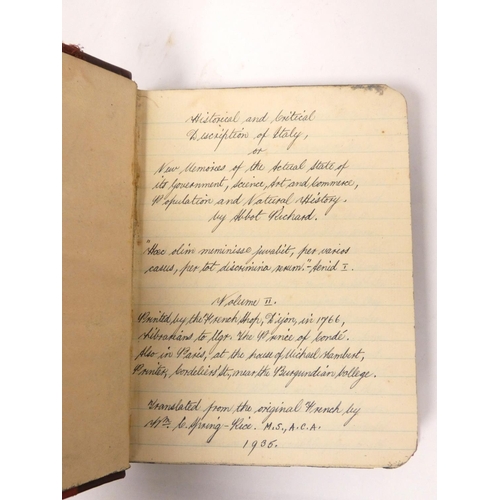 Historical and Critical
Discription of Italy,
or
New Memories of the Actual State of
its Government, Science, Art and Commerce,
Population and Natural History.
by Abbot Richard.
"Haec olim meminisse juvabit, per varios
casus, per tot discrimina rerum."- Aenid I.
Volume II.
Printed by the French Shop, Dijon, in 1766,
Librarians to Mgr. The Prince of Condé.
Also in Paris, at the house of Michael Lambert,
Printer, Cordeliers St., near the Burgundian College.
Translated from the original French by
Wm. C. Spring-Rice. M.S., A.C.A.
1936.